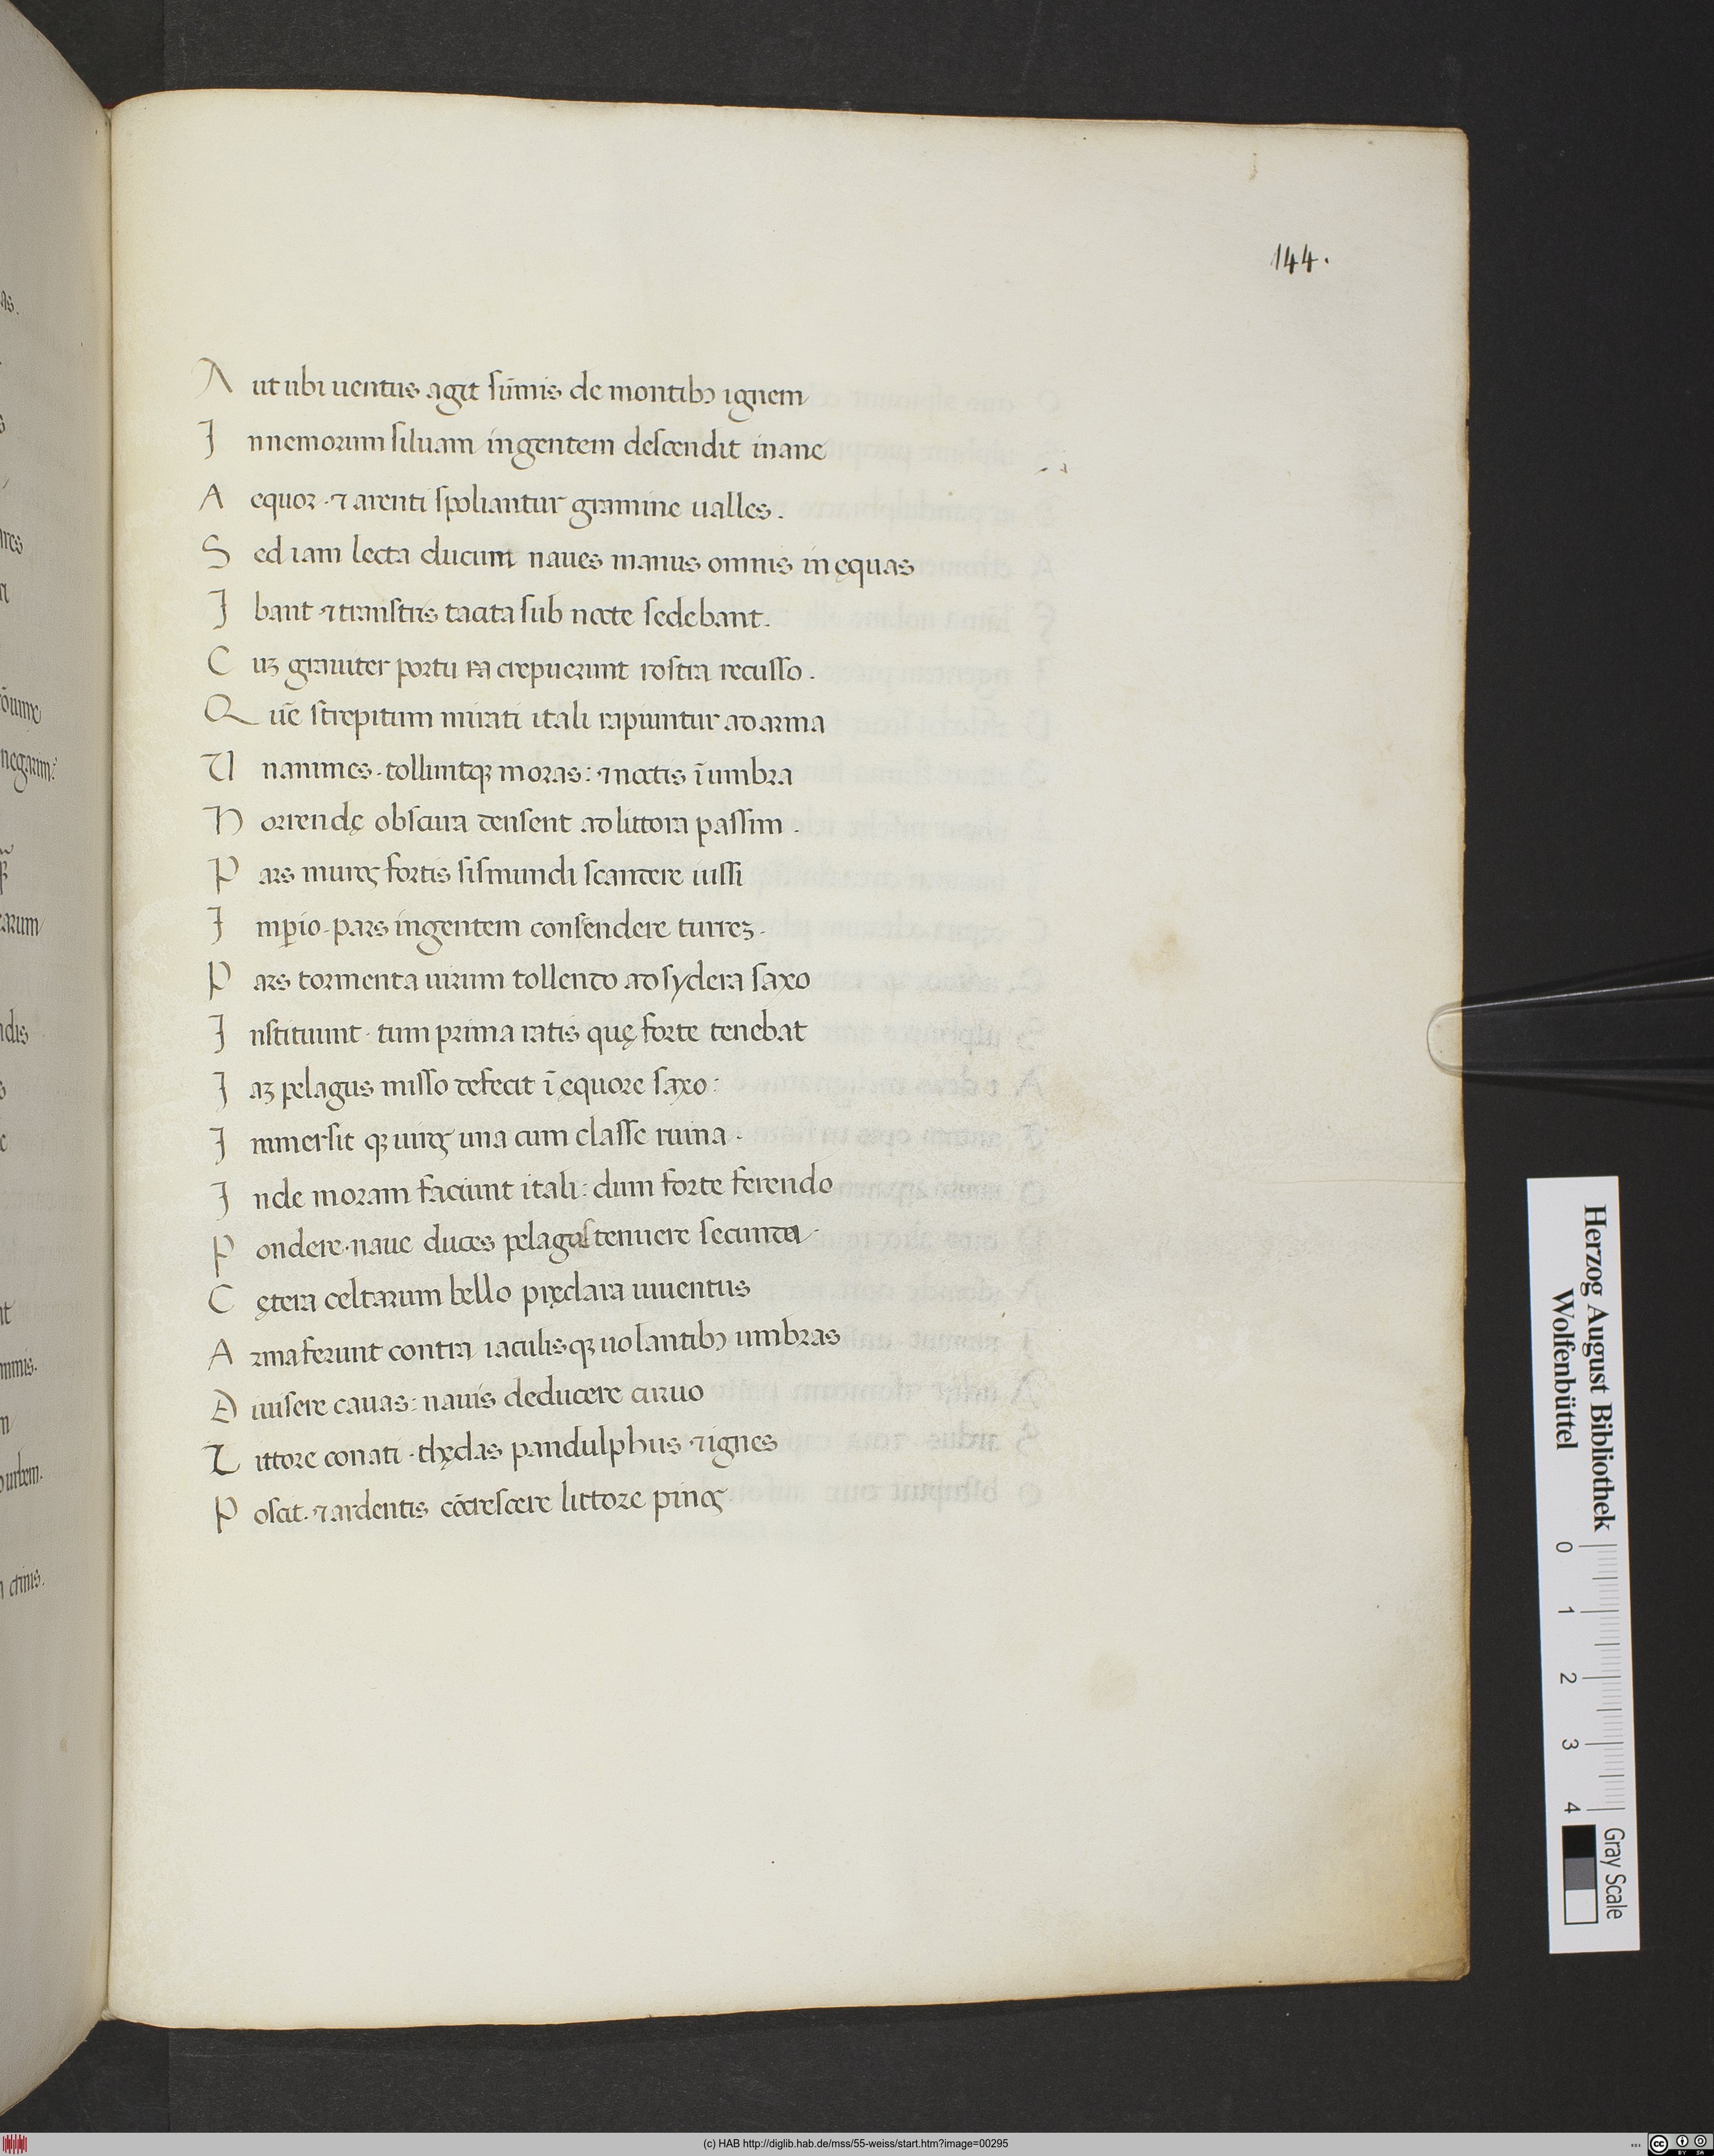 144.
A ut ubi uentus agit sūmis de montibꝫ ignem
I nnemorum siluam ingentem descendit inane
A equor · ⁊ arenti spoliantur gramine ualles.
S ed iam lecta ducum naues manus omnis in ęquas
I bant ⁊ transtris tacita sub nocte sedebant.
C uꝫ grauiter portu crepuerunt rostra recusso.
Q uē strepitum mirati itali rapiuntur ad arma
U nanimes · tolluntqꝫ moras: ⁊ noctis ī umbra
H orrendę obscura densent ad littora passim.
P ars muroꝝ fortis sismundi scandere iussi
I mꝑio · pars ingentem consendere turreꝫ.
P ars tormenta uirum tollendo ad sydera saxo
I nstituunt · tum prima ratis quę forte tenebat
I aꝫ pelagus misso defecit ī ęquore saxo:
I mmersit qꝫ uiroꝝ una cum classe ruina.
I nde moram faciunt itali: dum forte ferendo
P ondere · naue duces pelagus tenuere secunda.
C ętera celtarum bello pręclara iuuentus
A rma ferunt contra iaculisqꝫ uolantibꝫ umbras
D iuisere cauas: nauis deducere curuo
L ittore conati · thędas pandulphus ⁊ ignes
P oscit · ⁊ ardentis cōcrescere littore pinoꝝ
Herzog August Bibliothek
Wolfenbüttel
0 1 2 3 4
Gray Scale
(c) HAB http://diglib.hab.de/mss/55-weiss/start.htm?image=00295